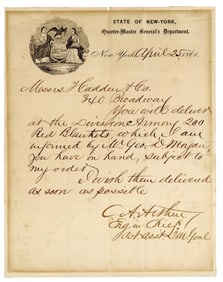 STATE OF NEW-YORK,
Quarter-Master General's Department,
New York April 25 186
Messrs T Hadden & Co.
340 Broadway
You will deliver
at the Division Armory 200
Red Blankets, which I am
informed by Mr Geo. D. Morgan
you have on hand, subject to
my order
I wish them delivered
as soon as possible
C. A. Arthur
Eng. in Chief